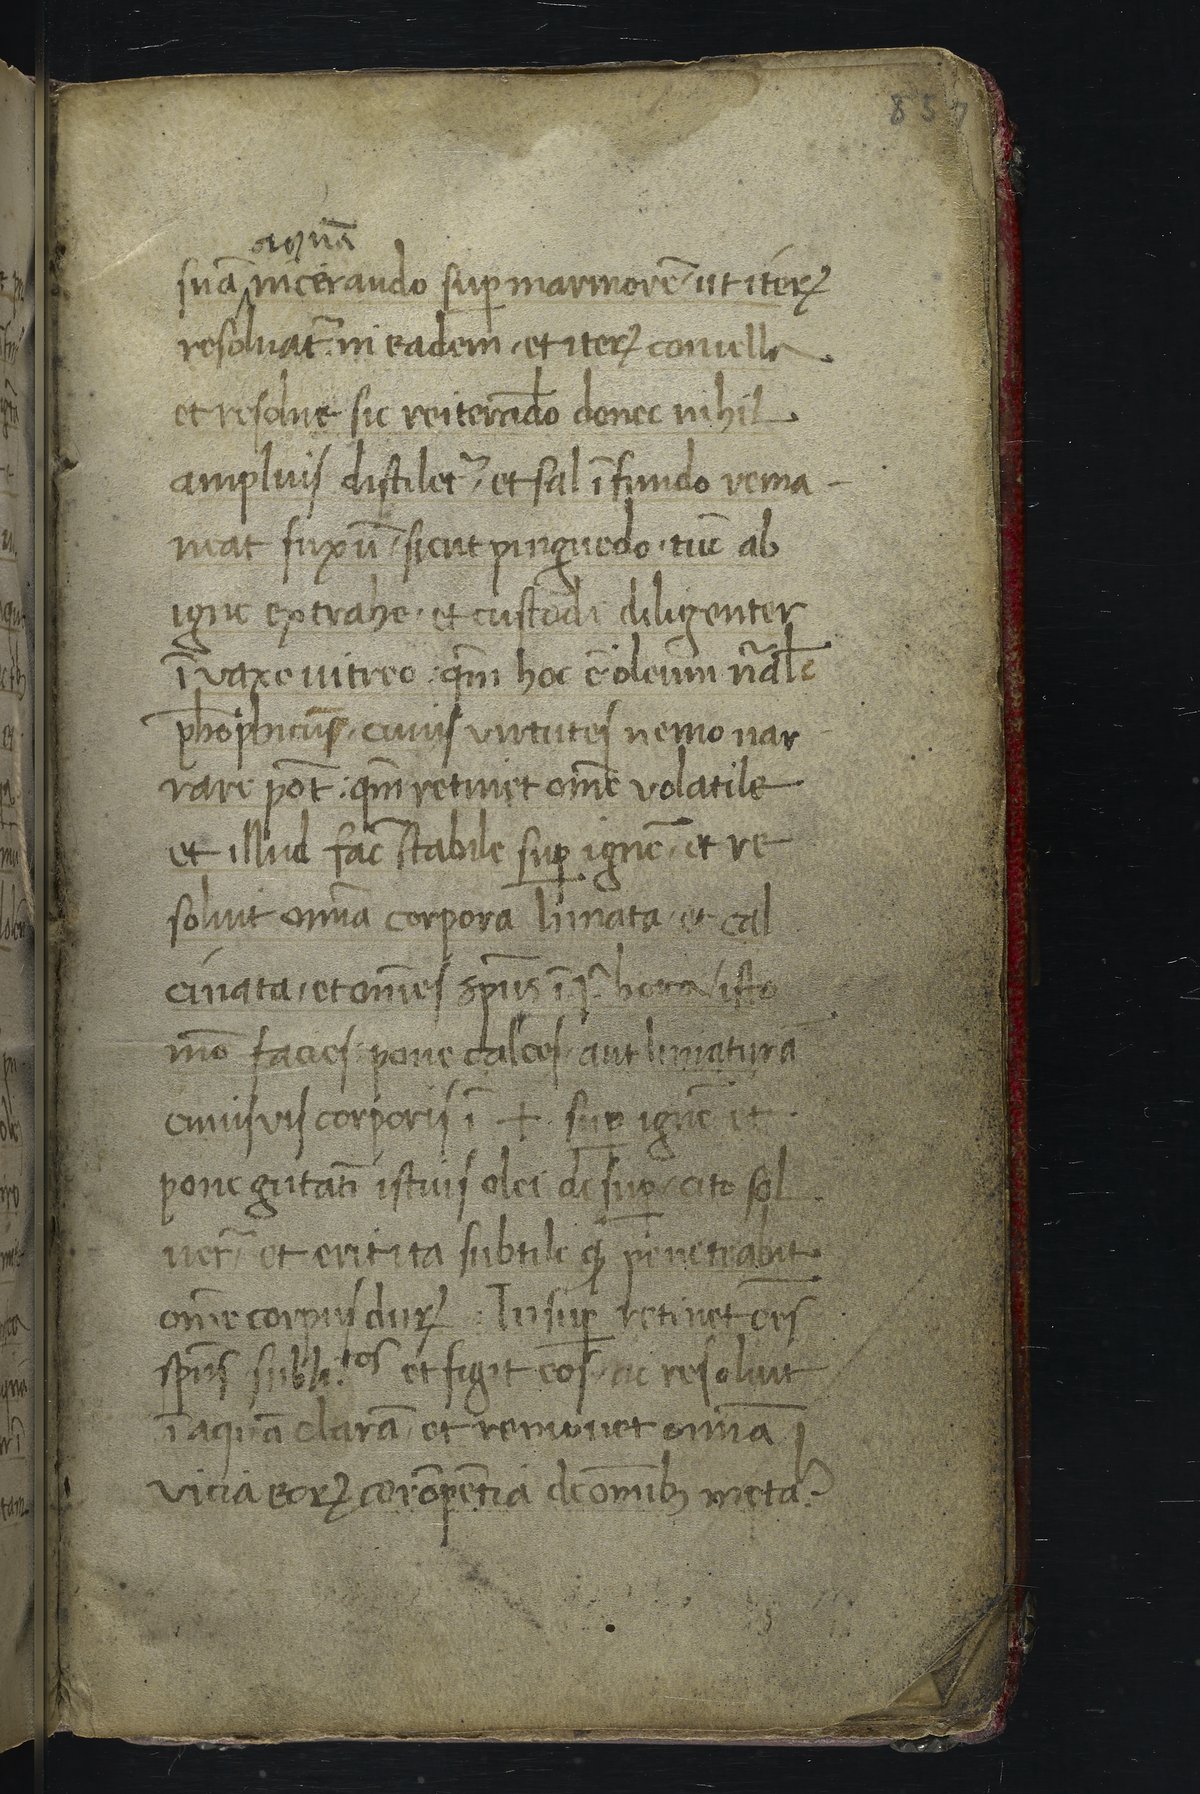 857
aquā
suā incerando suꝑ marmorē ut iterꝝ
resoluat᷑ in eadem et iterꝝ conuella
et resolue sic reiterādo donec nihil
ampluis distilet᷑ et sal ī fundo rema
neat fixū sicut pinguedo tūc ab
igne extrahe et custodi diligenter
ī vaxe uitreo qm̄ hoc ē oleum nr̄ale
ph̄ophicuȝ cuius virtutes nemo nar
rare pōt qm̄ retinet om̄e volatile
et illud fac̄ stabile suꝑ ignē et re
soluit om̄ia corpora limata et cal
cinata et om̄es sp̄us ī hora isto
mō facies pone calces aut limaturā
cuiusvis corporis ī + suꝑ ignē et
pone gutam̄ istius olei desuꝑ cito sol
uet᷑ et erit ita subtile qꝫ penetrabit
om̄e corpus durꝝ Insuꝑ retinet oēs
sp̄us subli.tos et figit eos ac resoluit
ī aquā clarā et remouet om̄ia
vicia eorꝝ corōpentia de om̄ibꝫ meta.